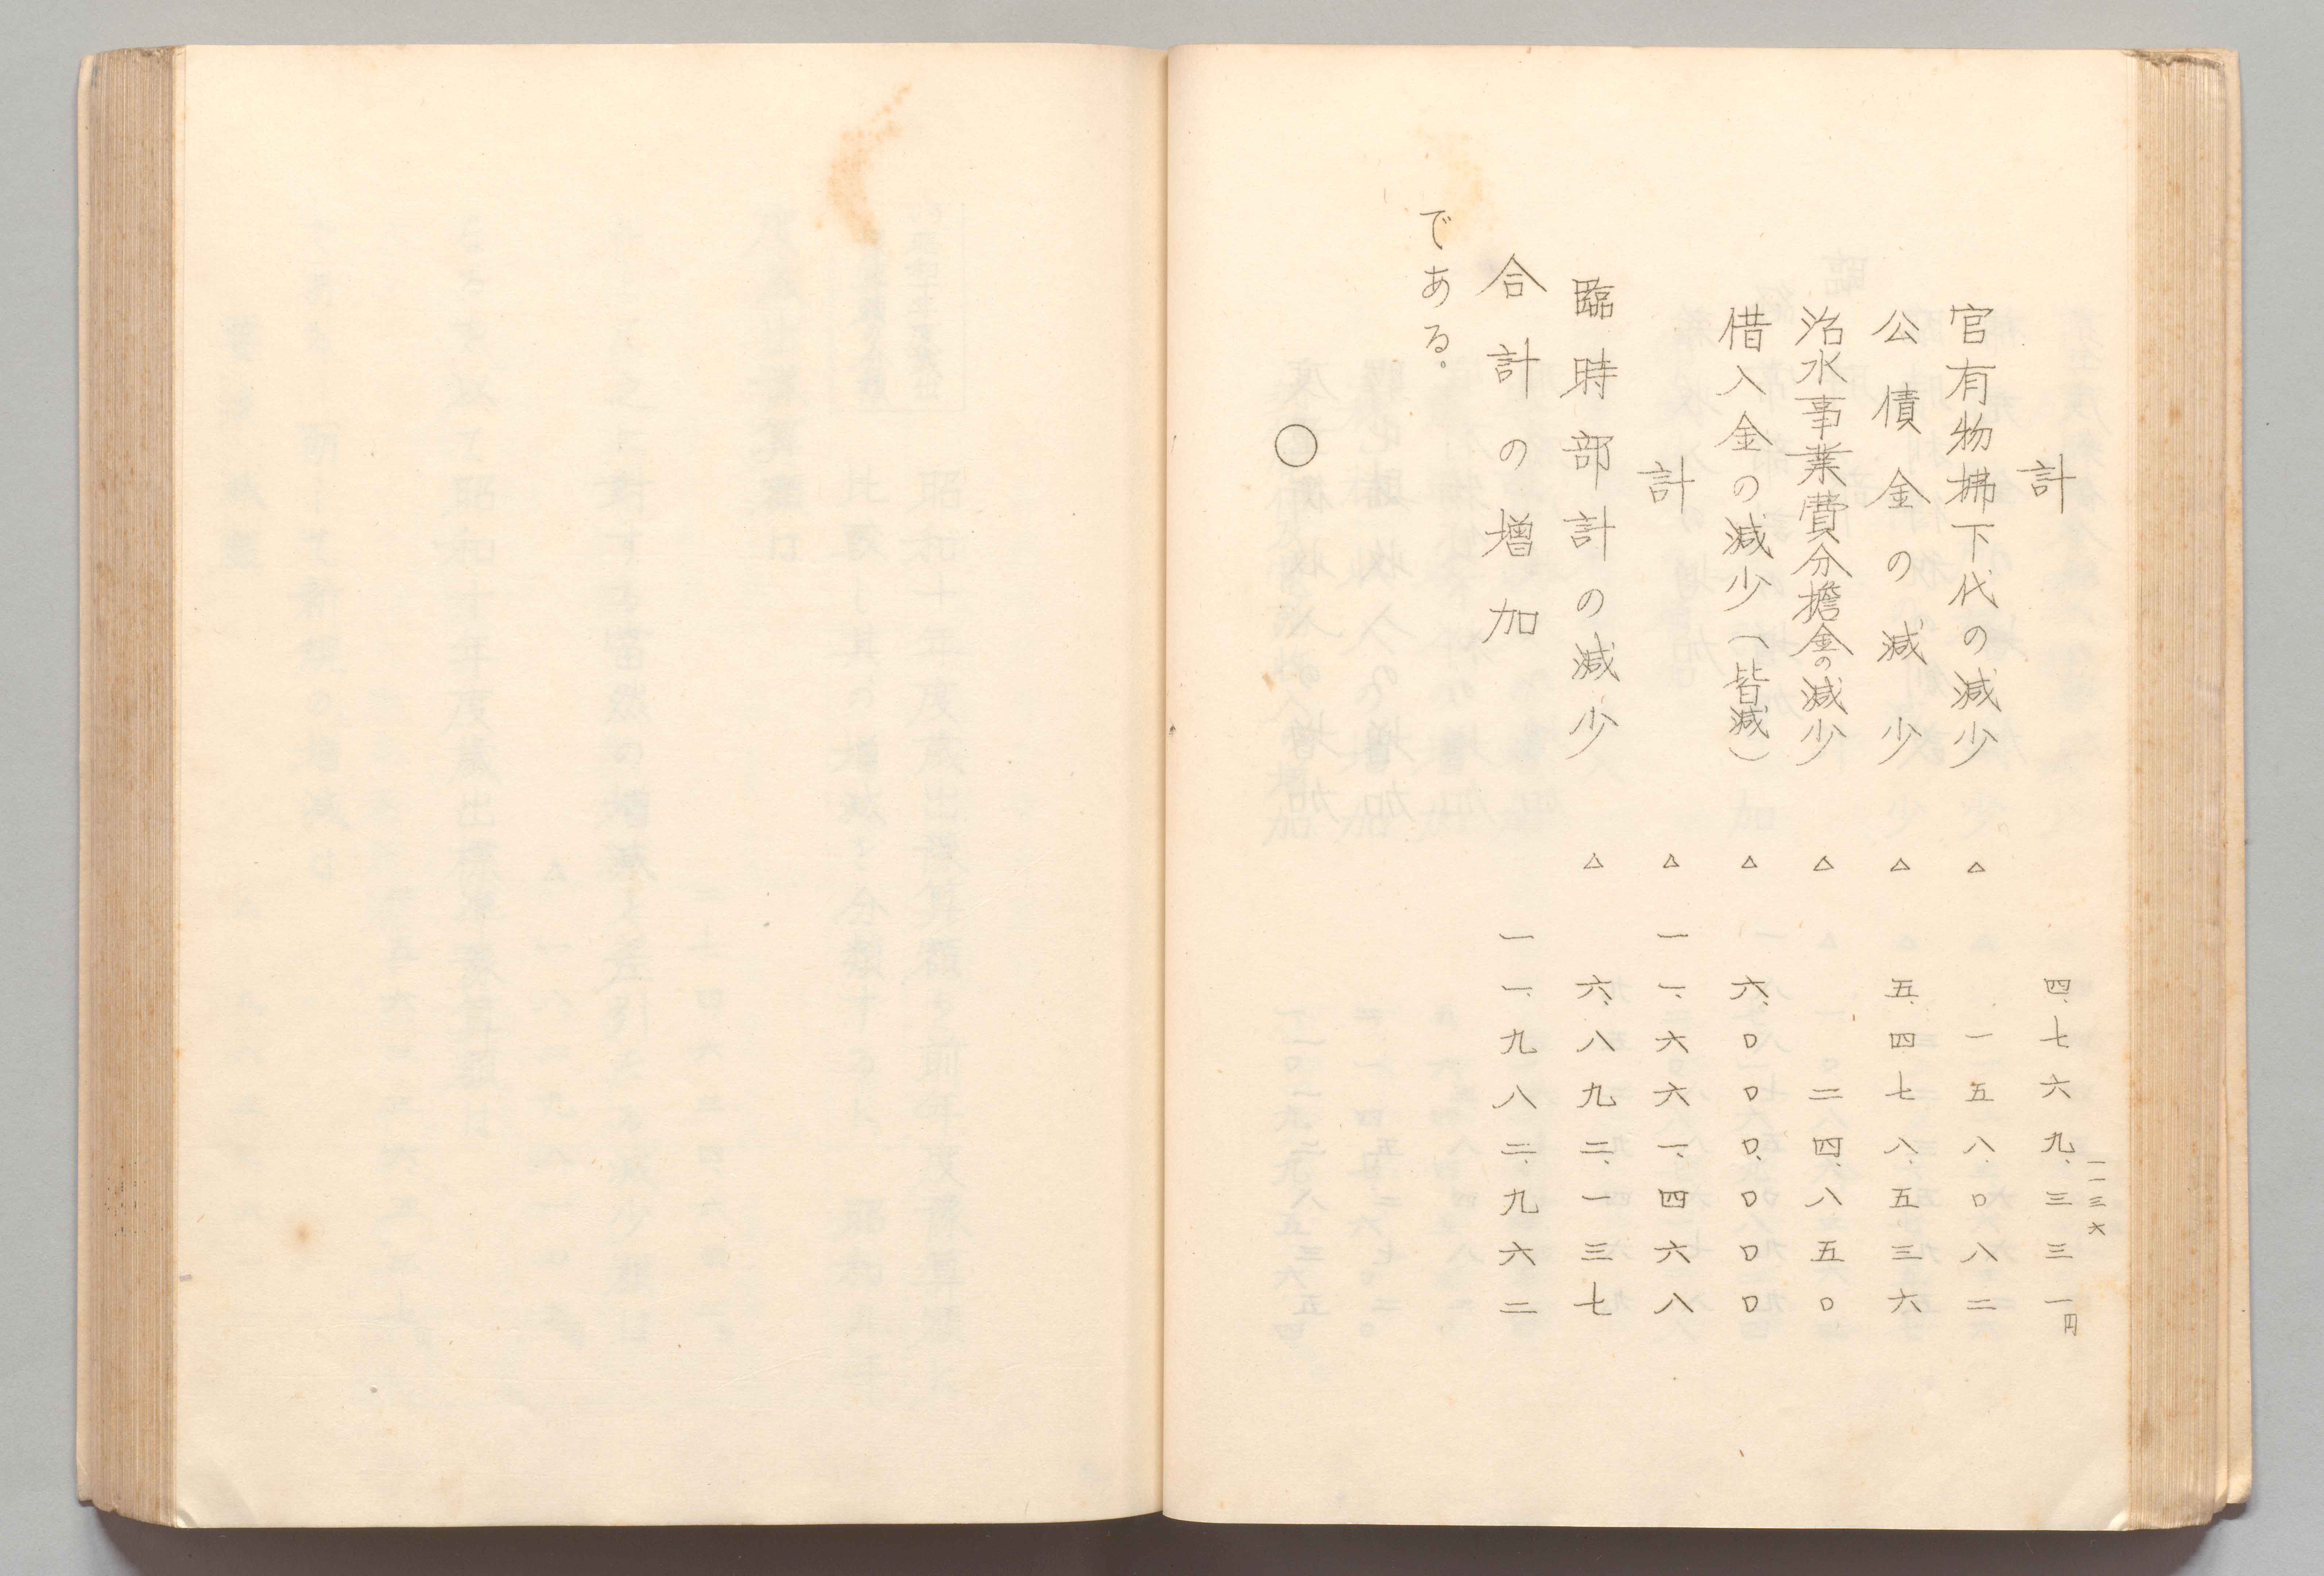 一一三六
計 四、七六九、三三一円
官有物拂下代の減少 △ 一五八、〇八二
公債金の減少 △ 五、四七八、五三六
治水事業費分擔金の減少 △ 二四、八五〇
借入金の減少(皆減) △ 六、〇〇〇、〇〇〇
計 △ 一一、六六一、四六八
臨時部計の減少 △ 六、八九二、一三七
合計の増加 一一、九八二、九六二
である。
○